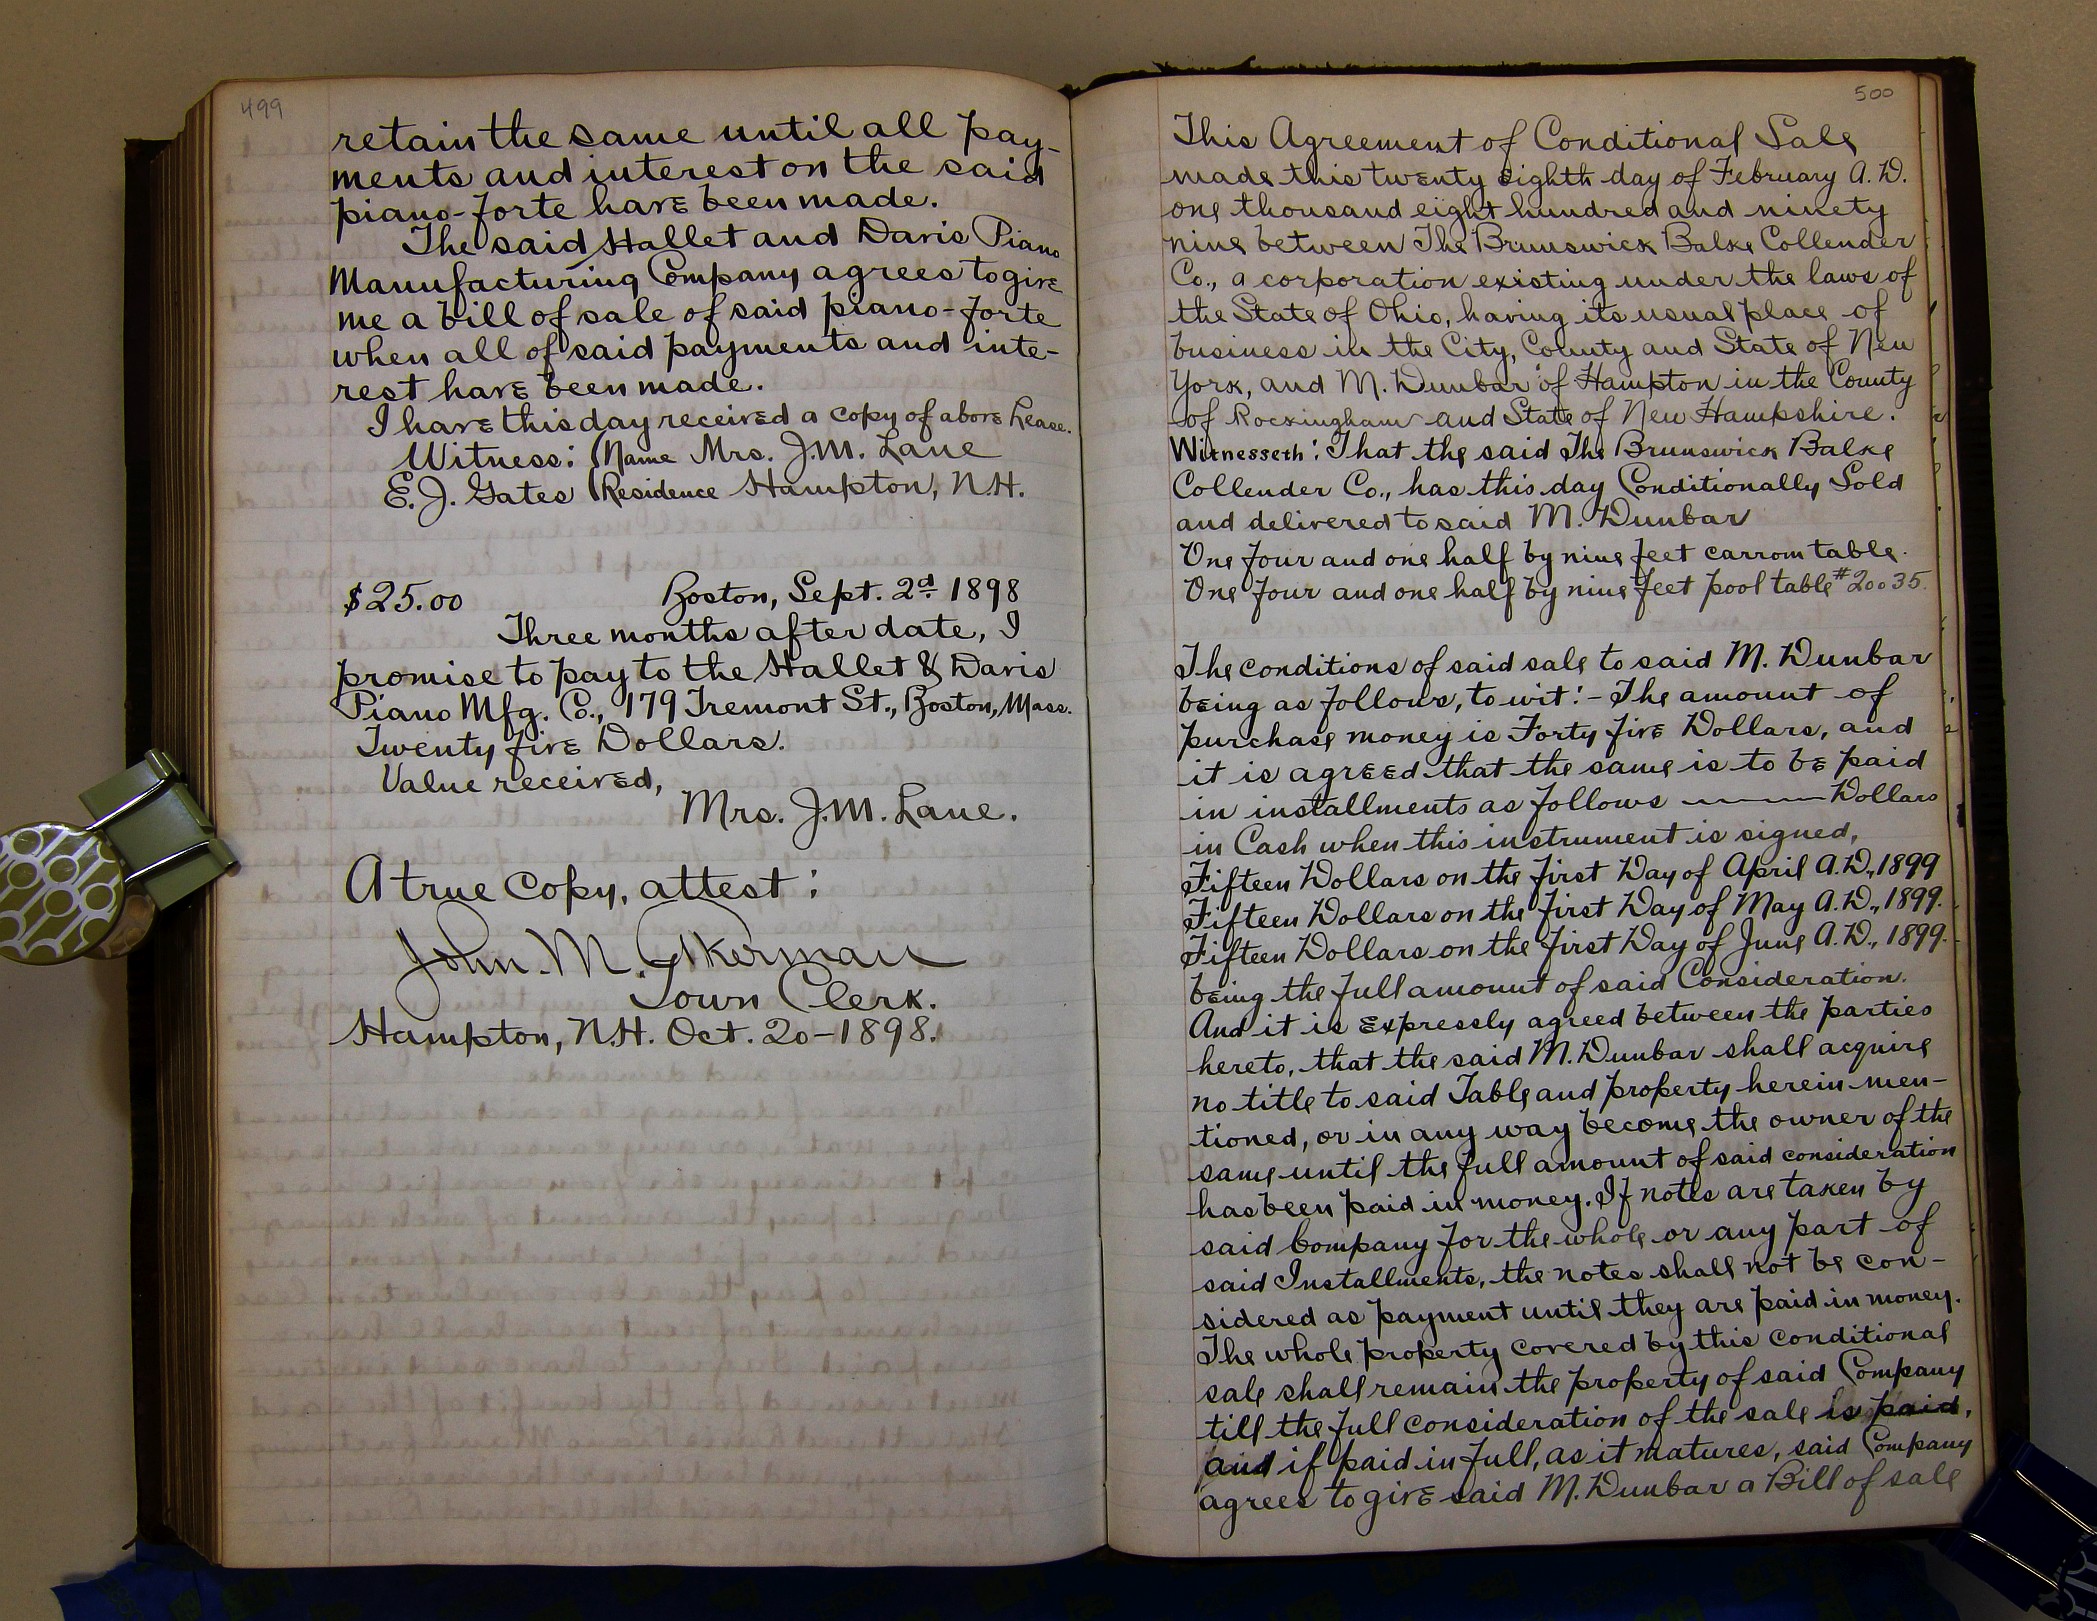 499
retain the same until all pay-
ments and interest on the said
piano-forte have been made.
The said Hallet and Davis Piano
Manufacturing Company agrees to give
me a bill of sale of said piano-forte
when all of said payments and inte-
rest have been made.
I have this day received a copy of above Lease.
Witness: (Name Mrs. J.M. Lane
E.J. Gates (Residence Hampton, N.H.
$25.00 Boston, Sept. 2d 1898
Three months after date, I
promise to pay to the Hallet & Davis
Piano Mfg. Co., 179 Tremont St., Boston, Mass.
Twenty five Dollars.
Value received,
Mrs. J.M. Lane.
A true Copy, attest:
John M. Akerman
Town Clerk.
Hampton, N.H. Oct. 20-1898.
500
This Agreement of Conditional Sale
made this twenty eighth day of February A.D.
one thousand eight hundred and ninety
nine between The Brunswick Balke Collender
Co., a corporation existing under the laws of
the State of Ohio, having its usual place of
business in the City, County and State of New
York, and M. Dunbar of Hampton in the County
of Rockingham and State of New Hampshire.
Witnesseth: That the said The Brunswick Balke
Collender Co., has this day Conditionally Sold
and delivered to said M. Dunbar
One four and one half by nine feet carrom table.
One four and one half by nine feet pool table #20035.
The conditions of said sale to said M. Dunbar
being as follows, to wit:- The amount of
purchase money is Forty five Dollars, and
it is agreed that the same is to be paid
in installments as follows ——— Dollars
in Cash when this instrument is signed,
Fifteen Dollars on the first Day of April A.D., 1899
Fifteen Dollars on the first Day of May A.D., 1899.
Fifteen Dollars on the first Day of June A.D., 1899.
being the full amount of said Consideration.
And it is expressly agreed between the parties
hereto, that the said M. Dunbar shall acquire
no title to said Table and property herein men-
tioned, or in any way become the owner of the
same until the full amount of said consideration
has been paid in money. If notes are taken by
said Company for the whole or any part of
said Installments, the notes shall not be con-
sidered as payment until they are paid in money.
The whole property covered by this conditional
sale shall remain the property of said Company
till the full consideration of the sale is paid,
and if paid in full, as it matures, said Company
agrees to give said M. Dunbar a Bill of sale